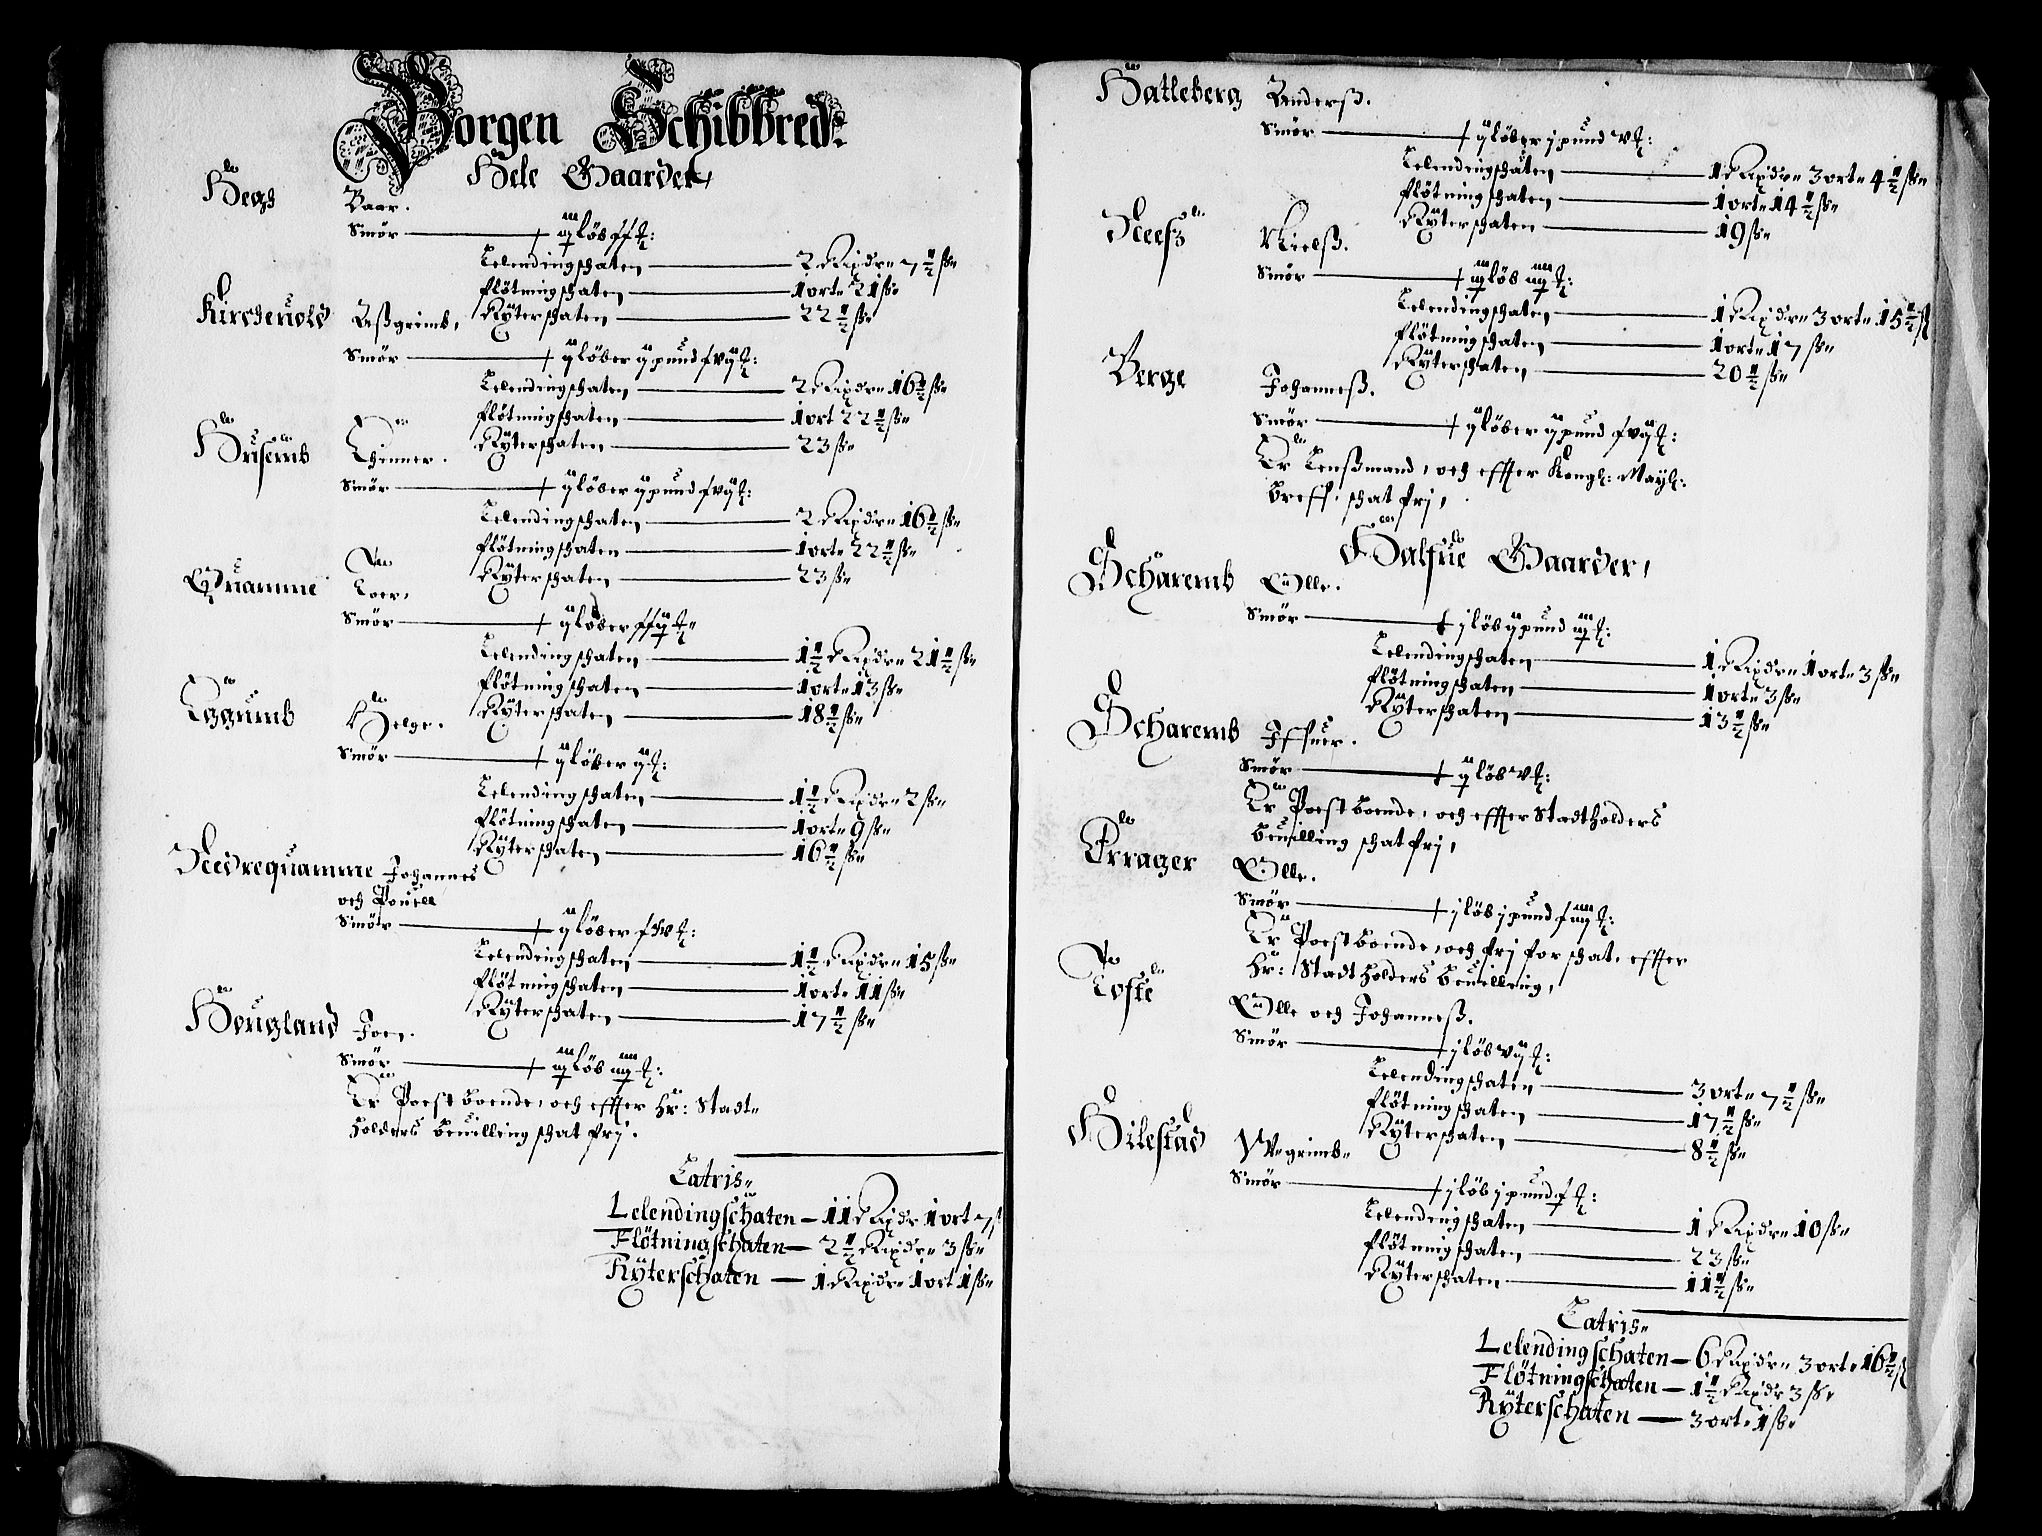 Borgen Schibbred:
Hele Gaarder,
Hegh Baar.
Smör + iij löb ff
Leilendingschaten 2 Rixdr 7 1/2 ß
Flötningschaten 1 ort 21 ß
Rÿterschaten 22 1/2 ß
Kircheuold Aßgrimb,
Smör + ij löber ij pund f vij
Leilendingschaten 2 Rixdr 16 1/2 ß
Flötningschaten 1 ort 22 1/2 ß
Rÿterschaten 23 ß
Husemb
Smör + ij löber ij pund f vij
Leilendingschaten 2 Rixdr 16 1/2 ß
Flötningschaten 1 ort 22 1/2 ß
Rÿterschaten 23 ß
Quamme Toer,
Smör + ij löber ff ij
Leilendingschaten 1 1/2 Rixdr 21 1/2 ß
Flötningschaten 1 ort 13 ß
Rÿterschaten 18 1/2 ß
Eggumb Helge.
Smör + ij löber ij
Leilendingschaten 1 1/2 Rixdr 2 ß
Flötningschaten 1 ort 9 ß
Rÿterschaten 16 1/2 ß
Needrequamme Johannes
och Pouell
Smör + ij löber
Leilendingschaten 1 1/2 Rixdr 15 ß
Flötningschaten 1 ort 11 ß
Rÿterschaten 17 1/2 ß
Hougland Joen.
Smör + iij löb iiij
Er Poestboende, och effter Hr: Stadt-
holders beuilling schat frj.
Latris
Lelendingschaten — 11 Rixdr 1 ort 7 ß
Flötningschaten — 2 1/2 Rixdr 3 ß
Rÿterschaten — 1 Rixdr 1 ort 1 ß
Hatleberg Anderß.
Smör + ij löber j pund v
Leilendingschaten 1 Rixdr 3 ort 4 1/2 ß
Flötningschaten 1 ort 14 1/2 ß
Rÿterschaten 19 ß
Neeß Nielß.
Smör + iij löb iiij
Leilendingschaten 1 Rixdr 3 ort 15 1/2 ß
Flötningschaten 1 ort 17 ß
Rÿterschaten 20 1/2 ß
Berge Johanneß.
Smör + ij löber ij pund f vij
Er Lenßmand, och effter Kongl: Mayt:
breff, schat frj,
Halfue Gaarder,
Scharemb Olle.
Smör + j löb ij pund iij
Leilendingschaten 1 Rixdr 1 ort 3 ß
Flötningschaten 1 ort 3 ß
Rÿterschaten 13 1/2 ß
Scharemb Iffuer.
Smör + ij löb v
Er Poestboende, och effter Stadtholders
beuilling schat frj,
Errager Olle.
Smör + j löb j pund f iiij
Er Poestboende, och frj for schat, effter
Hr: Stadtholders beuilling,
Tofte Olle och Johanneß.
Smör + j löb vij
Leilendingschaten 3 ort 7 1/2 ß
Flötningschaten 17 1/2 ß
Rÿterschaten 8 1/2 ß
Hilestad
Smör + j löb j pund f
Leilendingschaten 1 Rixdr 10 ß
Flötningschaten 23 ß
Rÿterschaten 11 1/2 ß
Latris
Lelendingschaten — 6 Rixdr 3 ort 16 1/2 ß
Flötningschaten — 1 1/2 Rixdr 3 ß
Rÿterschaten — 3 ort 1 ß